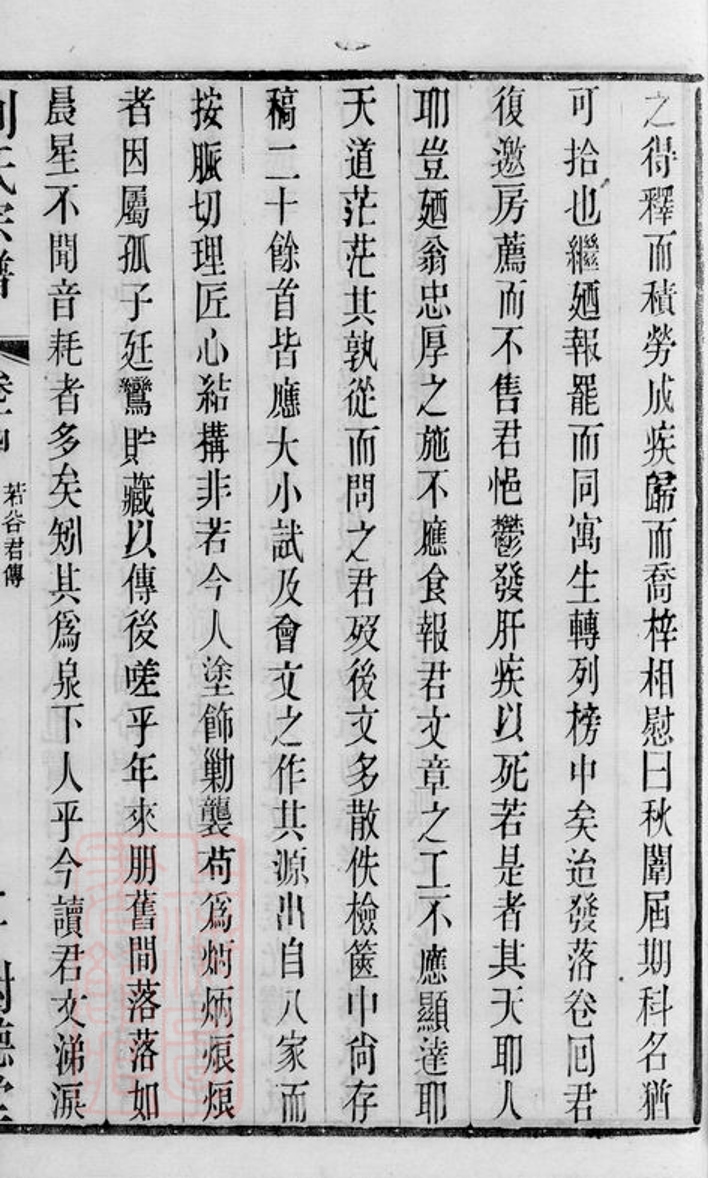 之得釋而積勞成疾歸而喬梓相慰曰秋闈屆期科名猶
可拾也繼廼報罷而同寓生轉列榜中矣迨發落卷回君
復邀房薦而不售君悒鬱發肝疾以死若是者其天耶人
耶豈廼翁忠厚之施不應食報君文章之工不應顯達耶
天道茫茫其孰從而問之君歿後文多散佚檢篋中尙存
稿二十餘首皆應大小試及會文之作其源出自八家而
按脈切理匠心結搆非若今人塗飾勦襲苟爲炳炳烺烺
者因屬孤子廷鸞貯藏以傳後嗟乎年來朋舊間落落如
晨星不聞音耗者多矣矧其爲泉下人乎今讀君文涕淚
若谷君傳